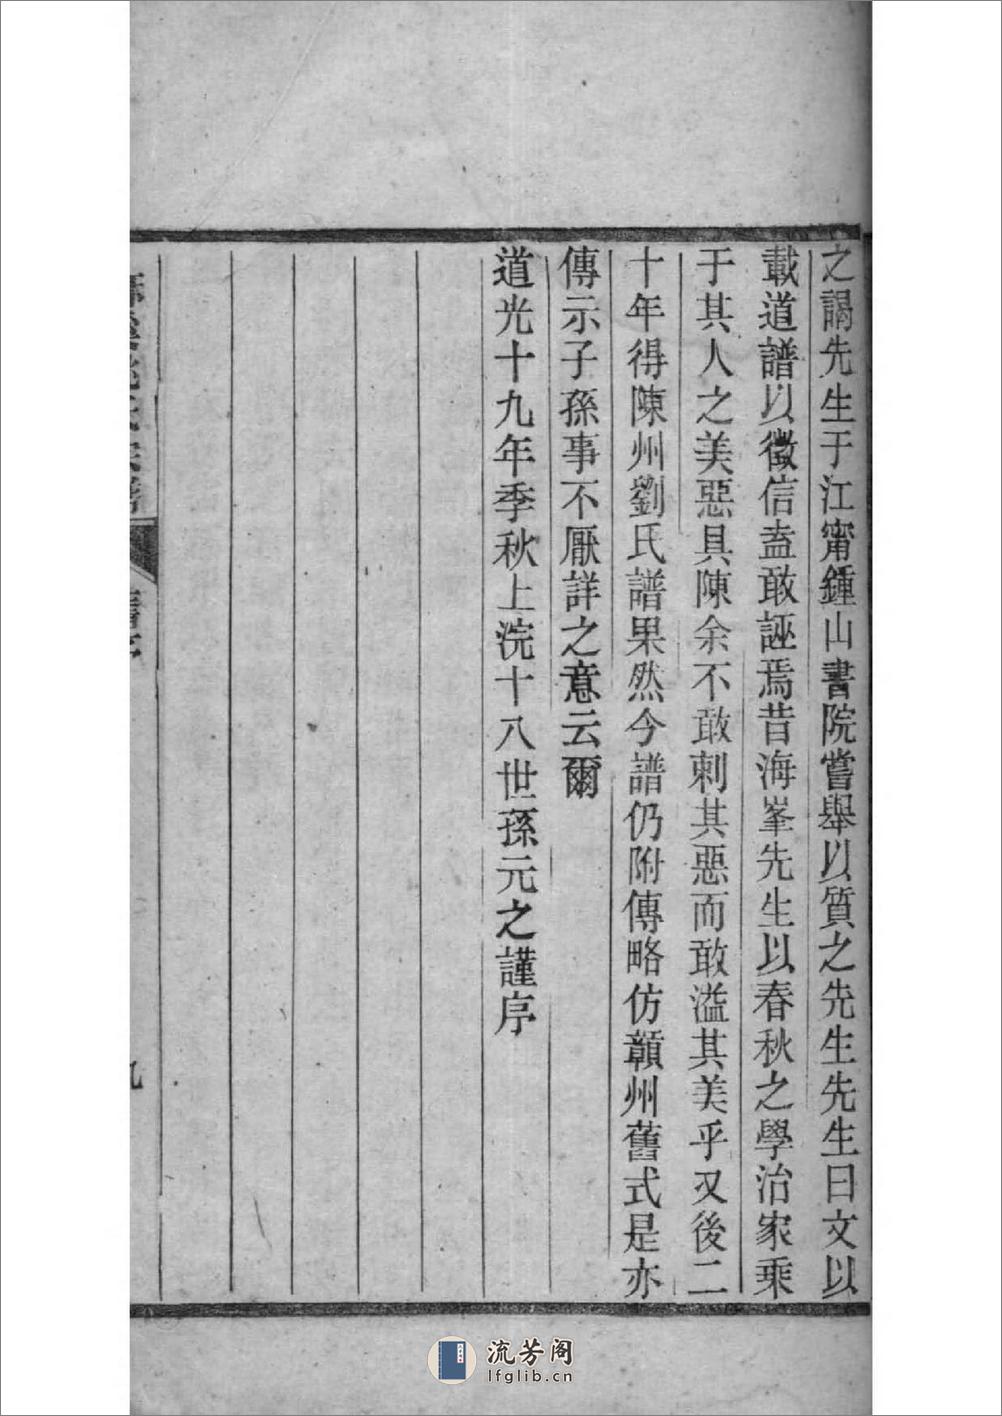 之謁先生于江甯鍾山書院嘗舉以質之先生先生曰文以
載道譜以徵信盍敢誣焉昔海峯先生以春秋之學治家乘
于其人之美惡具陳余不敢刺其惡而敢溢其美乎又後二
十年得陳州劉氏譜果然今譜仍附傳略仿贛州舊式是亦
傳示子孫事不厭詳之意云爾
道光十九年季秋上浣十八世孫元之謹序
九
流芳阁
lfglib.cn